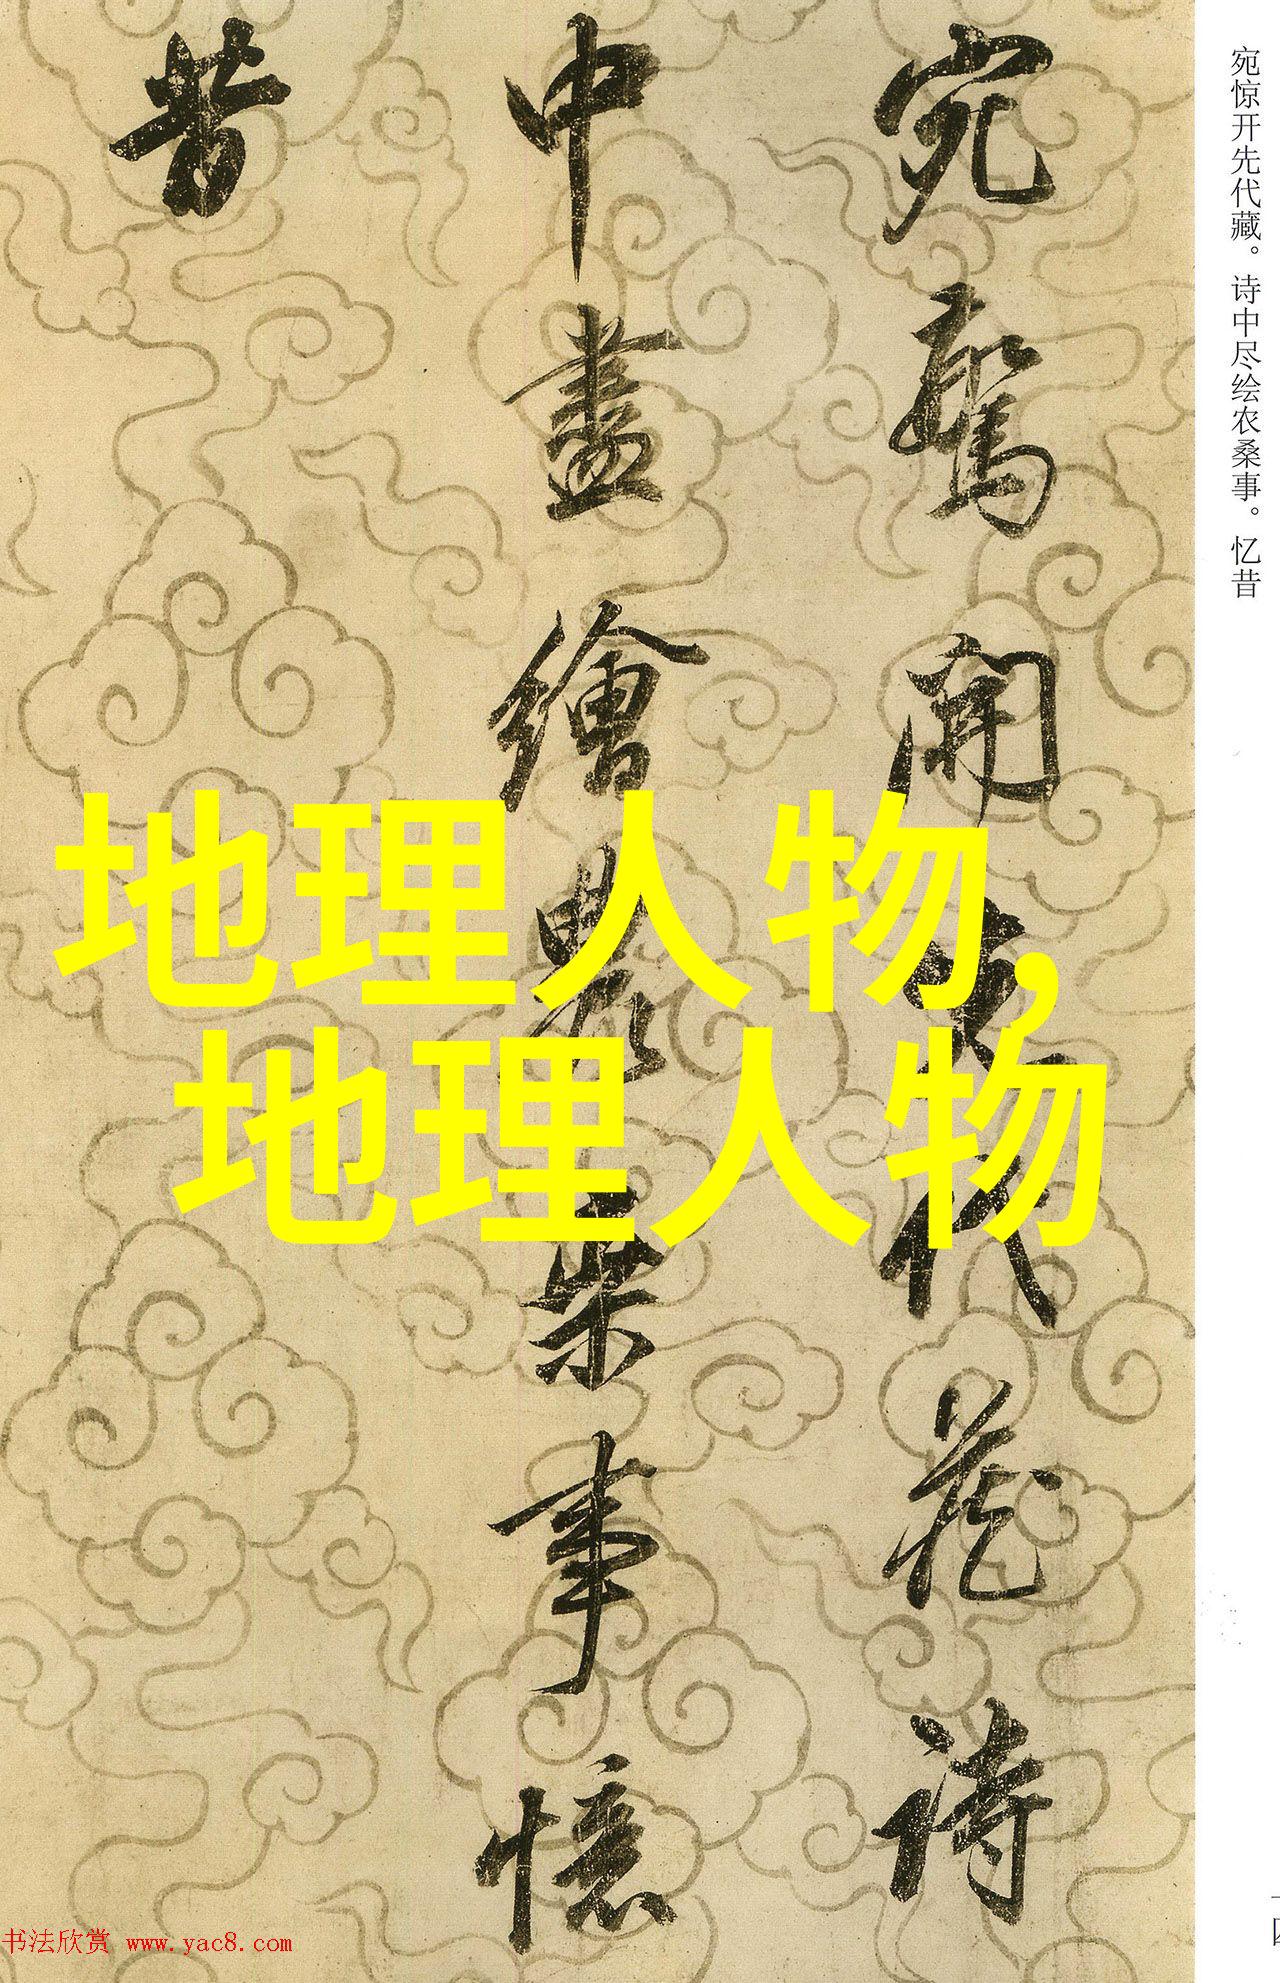 宛驚開先代藏詩
中盡繪農桑事憶
昔
宛惊开先代藏。诗中尽绘农桑事。忆昔
地理人物,
地理人物
书法欣赏 www.yac8.com